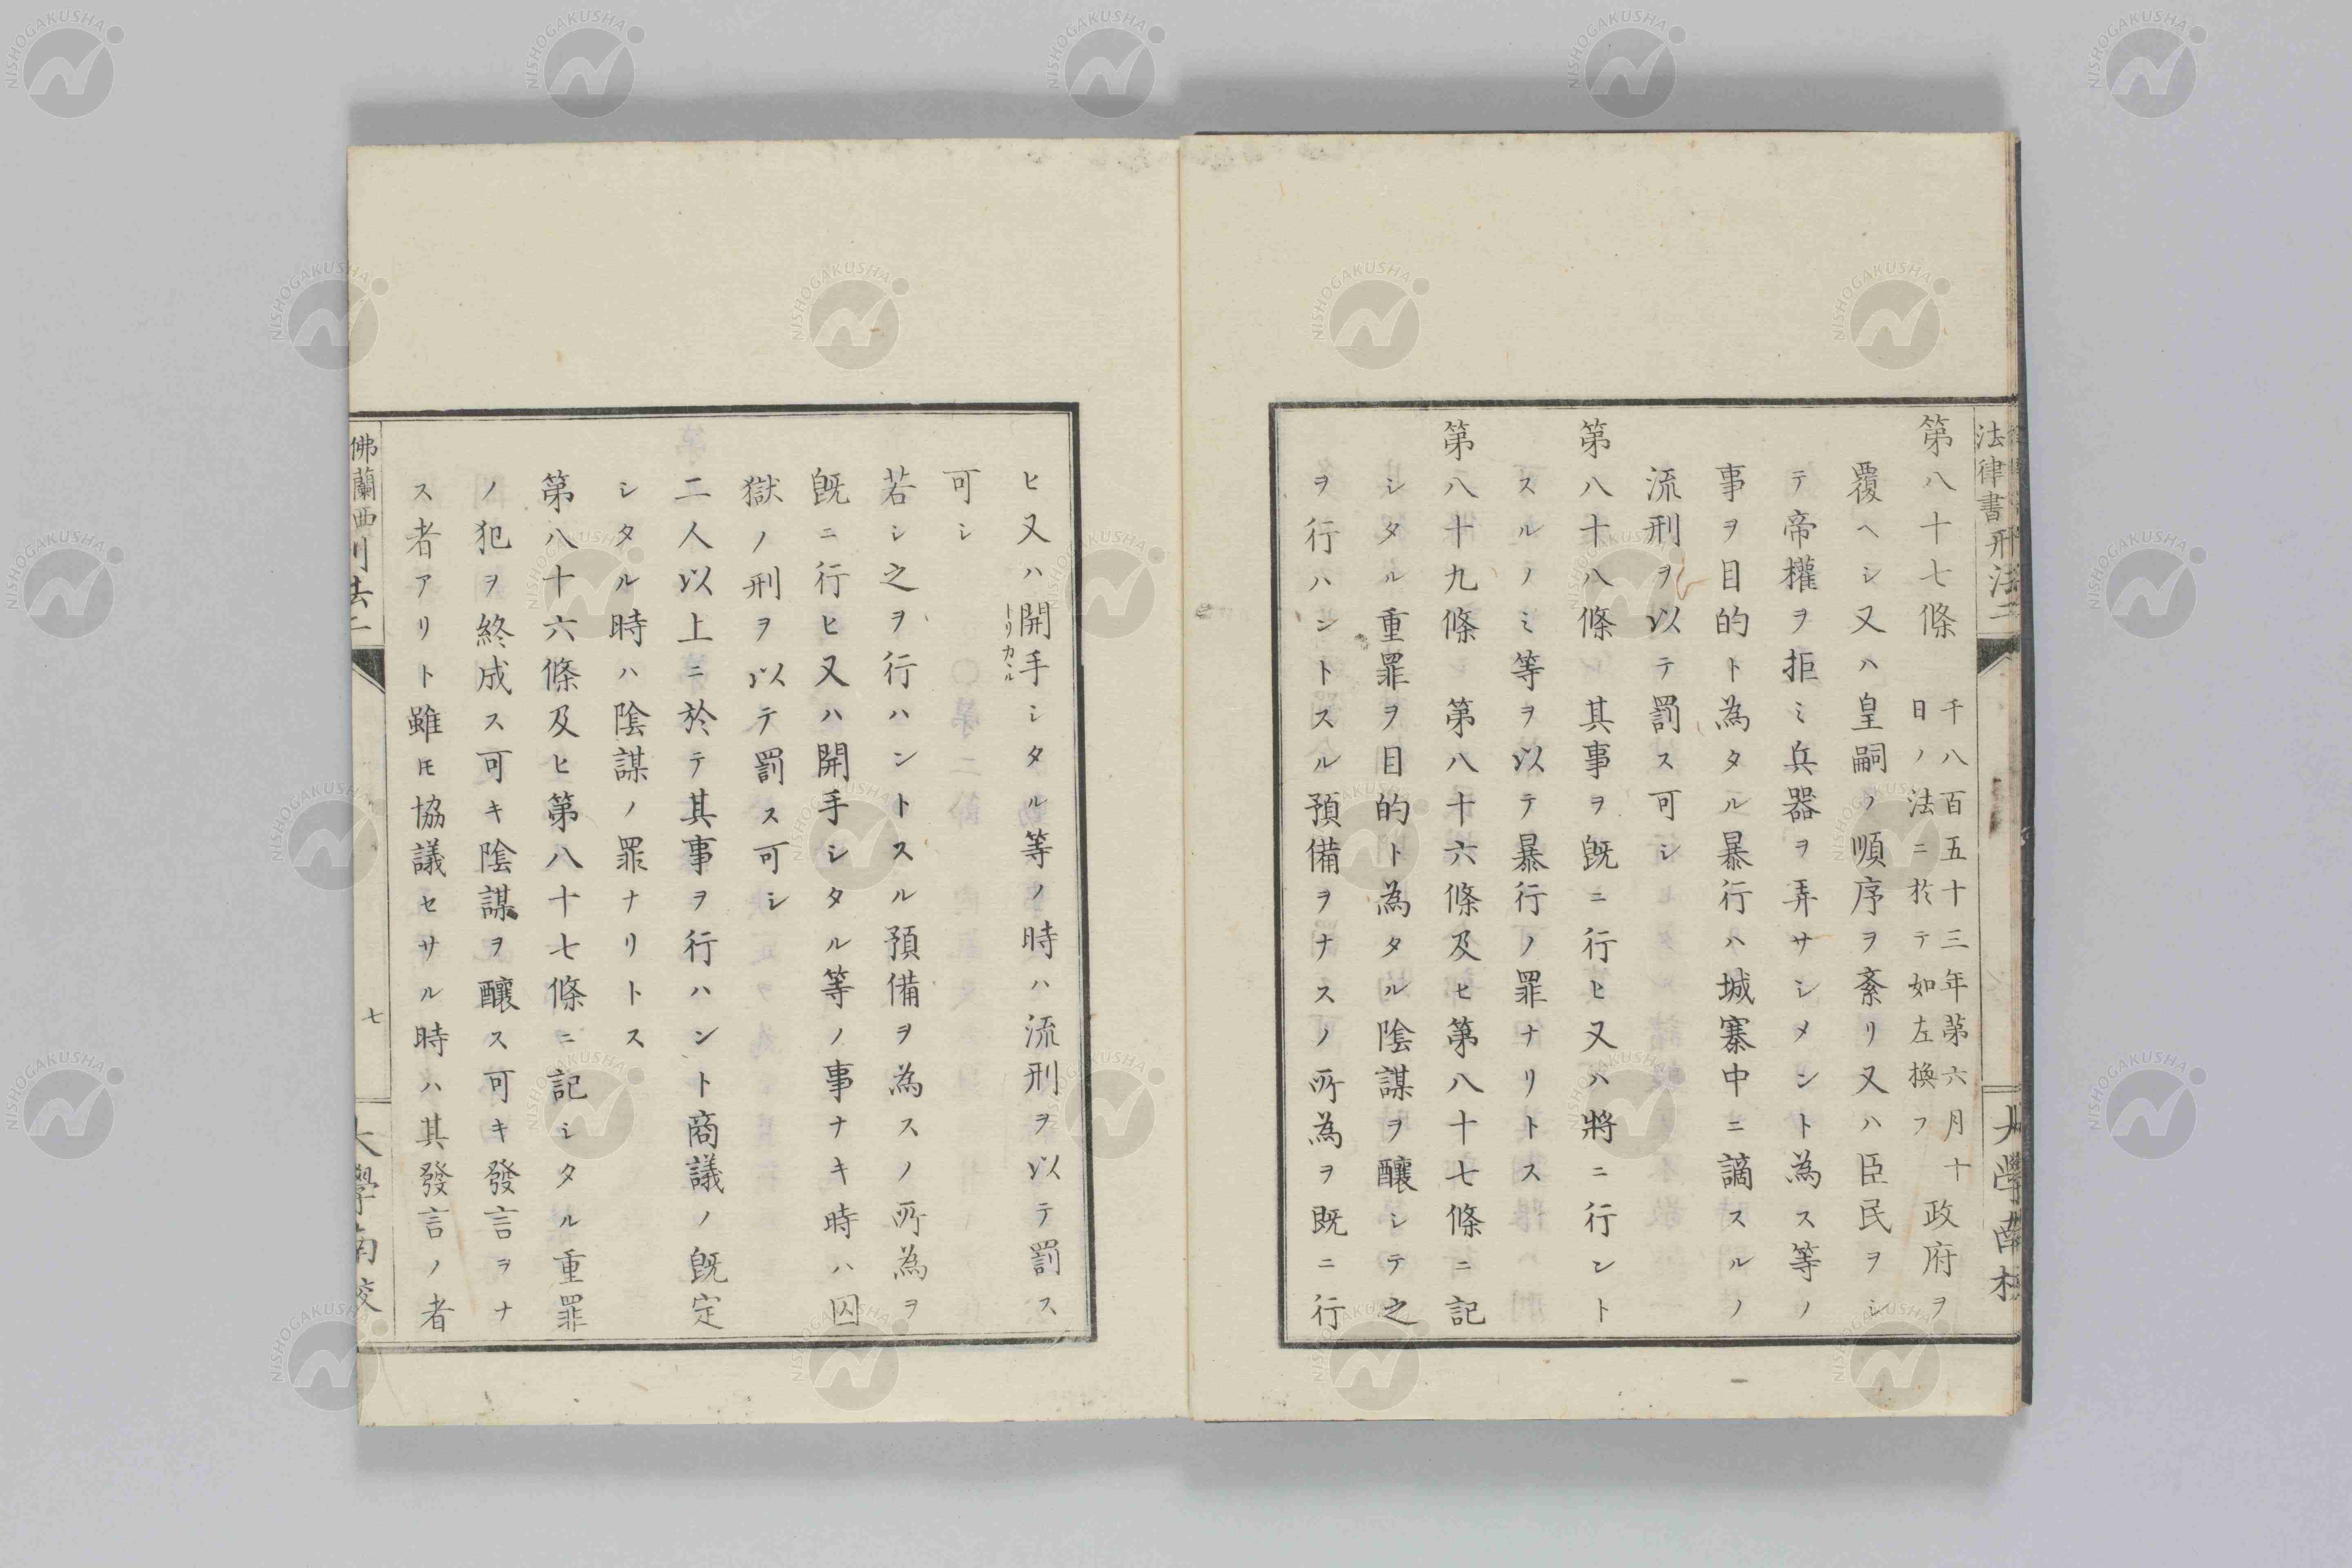 法律書刑法二
大學南校
第八十七條 千八百五十三年第六月十
日ノ法ニ於テ如左換フ 政府ヲ
覆ヘシ又ハ皇嗣ノ順序ヲ紊リ又ハ臣民ヲシ
テ帝權ヲ拒ミ兵器ヲ弄サシメント為ス等ノ
事ヲ目的ト為タル暴行ハ城寨中ニ謫スルノ
流刑ヲ以テ罰ス可シ
第八十八條 其事ヲ既ニ行ヒ又ハ將ニ行ント
スルノミ等ヲ以テ暴行ノ罪ナリトス
第八十九條 第八十六條及ヒ第八十七條ニ記
シタル重罪ヲ目的ト為タル陰謀ヲ釀シテ之
ヲ行ハントスル預備ヲナスノ所為ヲ既ニ行
ヒ又ハ開手シタル等ノ時ハ流刑ヲ以テ罰ス
トリカヽル
可シ
若シ之ヲ行ハントスル預備ヲ為スノ所為ヲ
既ニ行ヒ又ハ開手シタル等ノ事ナキ時ハ囚
獄ノ刑ヲ以テ罰ス可シ
二人以上ニ於テ其事ヲ行ハント商議ノ既定
シタル時ハ陰謀ノ罪ナリトス
第八十六條及ヒ第八十七條ニ記シタル重罪
ノ犯ヲ終成ス可キ陰謀ヲ釀ス可キ發言ヲナ
ス者アリト雖𪜈協議セサル時ハ其發言ノ者
佛蘭西刑法二
七
大學南校
NISHOGAKUSHA